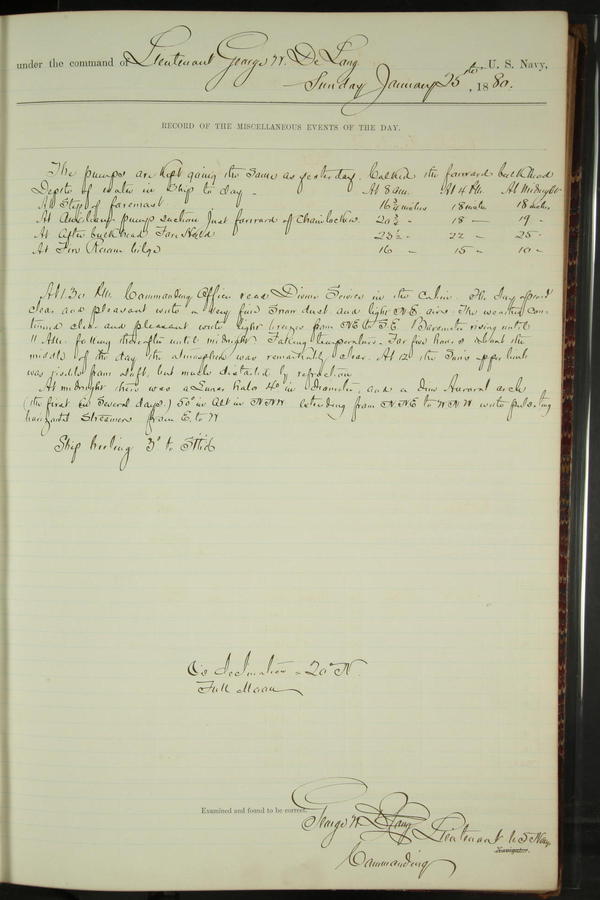 under the command of Lieutenant George W. De Long U. S. Navy,
Sunday January 25th, 1880.
RECORD OF THE MISCELLANEOUS EVENTS OF THE DAY.
The pumps are kept going the same as yesterday. Caulked the forward bulkhead
Depth of water in Ship to day - At 8 am. At 4 PM. At Midnight
At Step of foremast 16 3/4 inches 18 inches 18 inches
At Auxiliary pump suction just forward of chain locker 20 3/4 " 18 — 19 -
At After bulkhead Fore Hold 23 1/2 - 22 - 25 -
At Fire Room bilge 16 - 15 - 10 -
At 1.30 PM. Commanding Officer read Divine Service in the Cabin. The day opened
clear and pleasant with a very fine snow dust and light NE airs. The weather con-
tinued clear and pleasant with light breezes from NE to SE. Barometer rising until
11 AM. falling thereafter until midnight. Falling temperature. For few hours about the
middle of the day the atmosphere was remarkably clear. At 12 the Sun's upper limb
was visible from aloft, but much distorted by refraction.
At midnight there was a Lunar halo 40° in diameter, and a dim Auroral arch
(the first in several days.) 50° in alt in NNW extending from NNE to WNW with pulsating
horizontal streamers from E. to W
Ship heeling 3° to Stbd
declination = 20° N.
Full Moon
Examined and found to be correct.
George W. De Long Lieutenant U.S. Navy,
Navigator.
Commanding